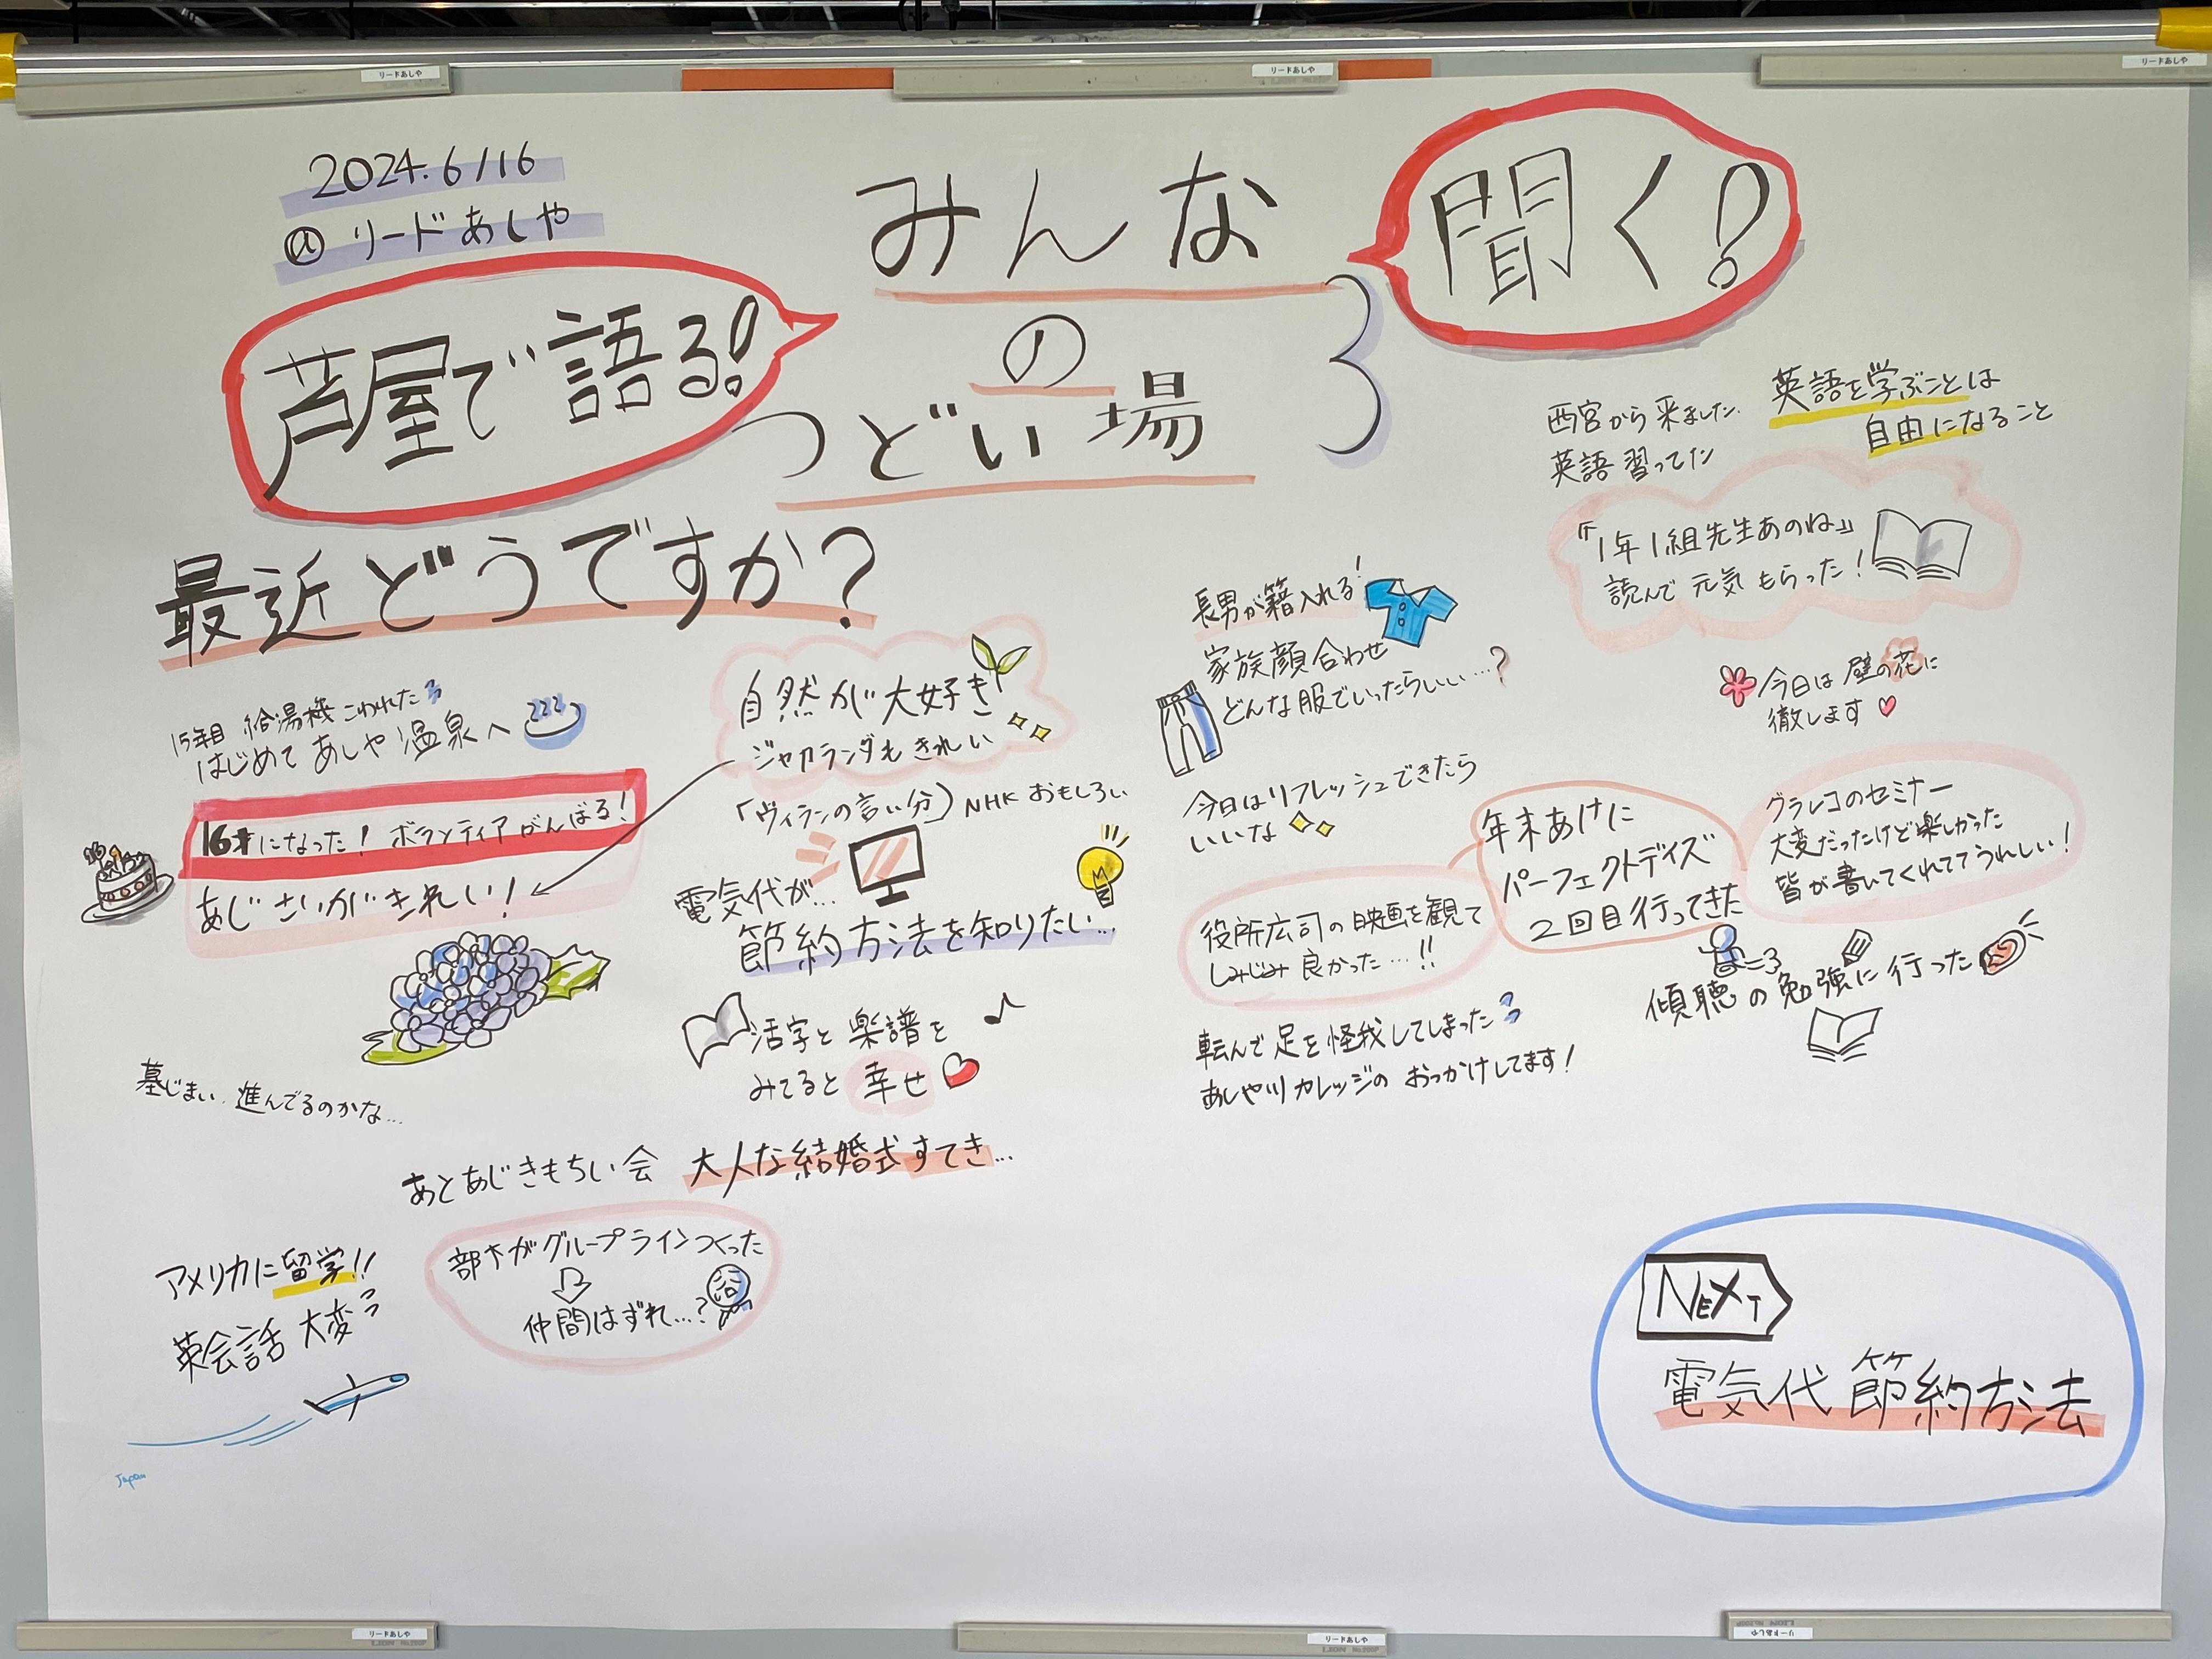 リードあしや
リードあしや
リードあしや
2024.6/16
@ リードあしや
芦屋で語る!
みんな
の
つどい場
3
聞く!
最近どうですか?
15年目 給湯機こわれた
はじめて あしや温泉へ
16才になった! ボランティアがんばる!
あじさいがきれい!
墓じまい 進んでるのかな…
自然が大好き
ジャカランダもきれい
「ヴィランの言い分」NHK おもしろい
電気代が…
節約方法を知りたい…
活字と楽譜を
みてると 幸せ
あとあじきもちい会 大人な結婚式すてき…
アメリカに留学!!
英会話 大変
Japan
部下がグループラインつくった
仲間はずれ…?
長男が籍入れる!
家族顔合わせ
どんな服でいったらいい…?
今日はリフレッシュできたら
いいな
役所広司の映画を観て
しみじみ良かった…!!
年末あけに
パーフェクトデイズ
2回目行ってきた
転んで足を怪我してしまった
あしや川カレッジの おっかけしてます!
西宮から来ました.
英語習ってた
英語を学ぶことは
自由になること
『1年1組先生あのね』
読んで元気もらった!
今日は壁の花に
徹します
グラレコのセミナー
大変だったけど楽しかった
皆が書いてくれててうれしい!
傾聴の勉強に行った
NEXT
電気代節約方法
リードあしや
リードあしや
リードあしや